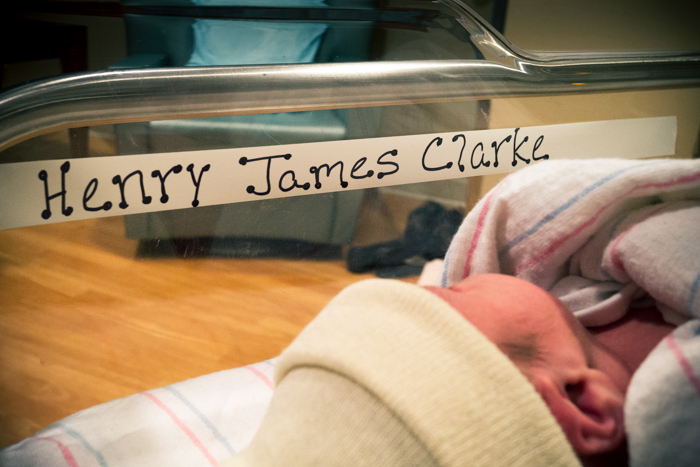 Henry James Clarke